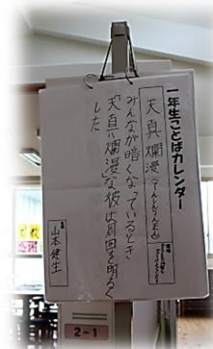 一年生ことばカレンダー
天真爛漫(てんしんらんまん)
みんなが暗くなっているとき
「天真爛漫」な彼は周囲を明るく
した
山本健生
2-1